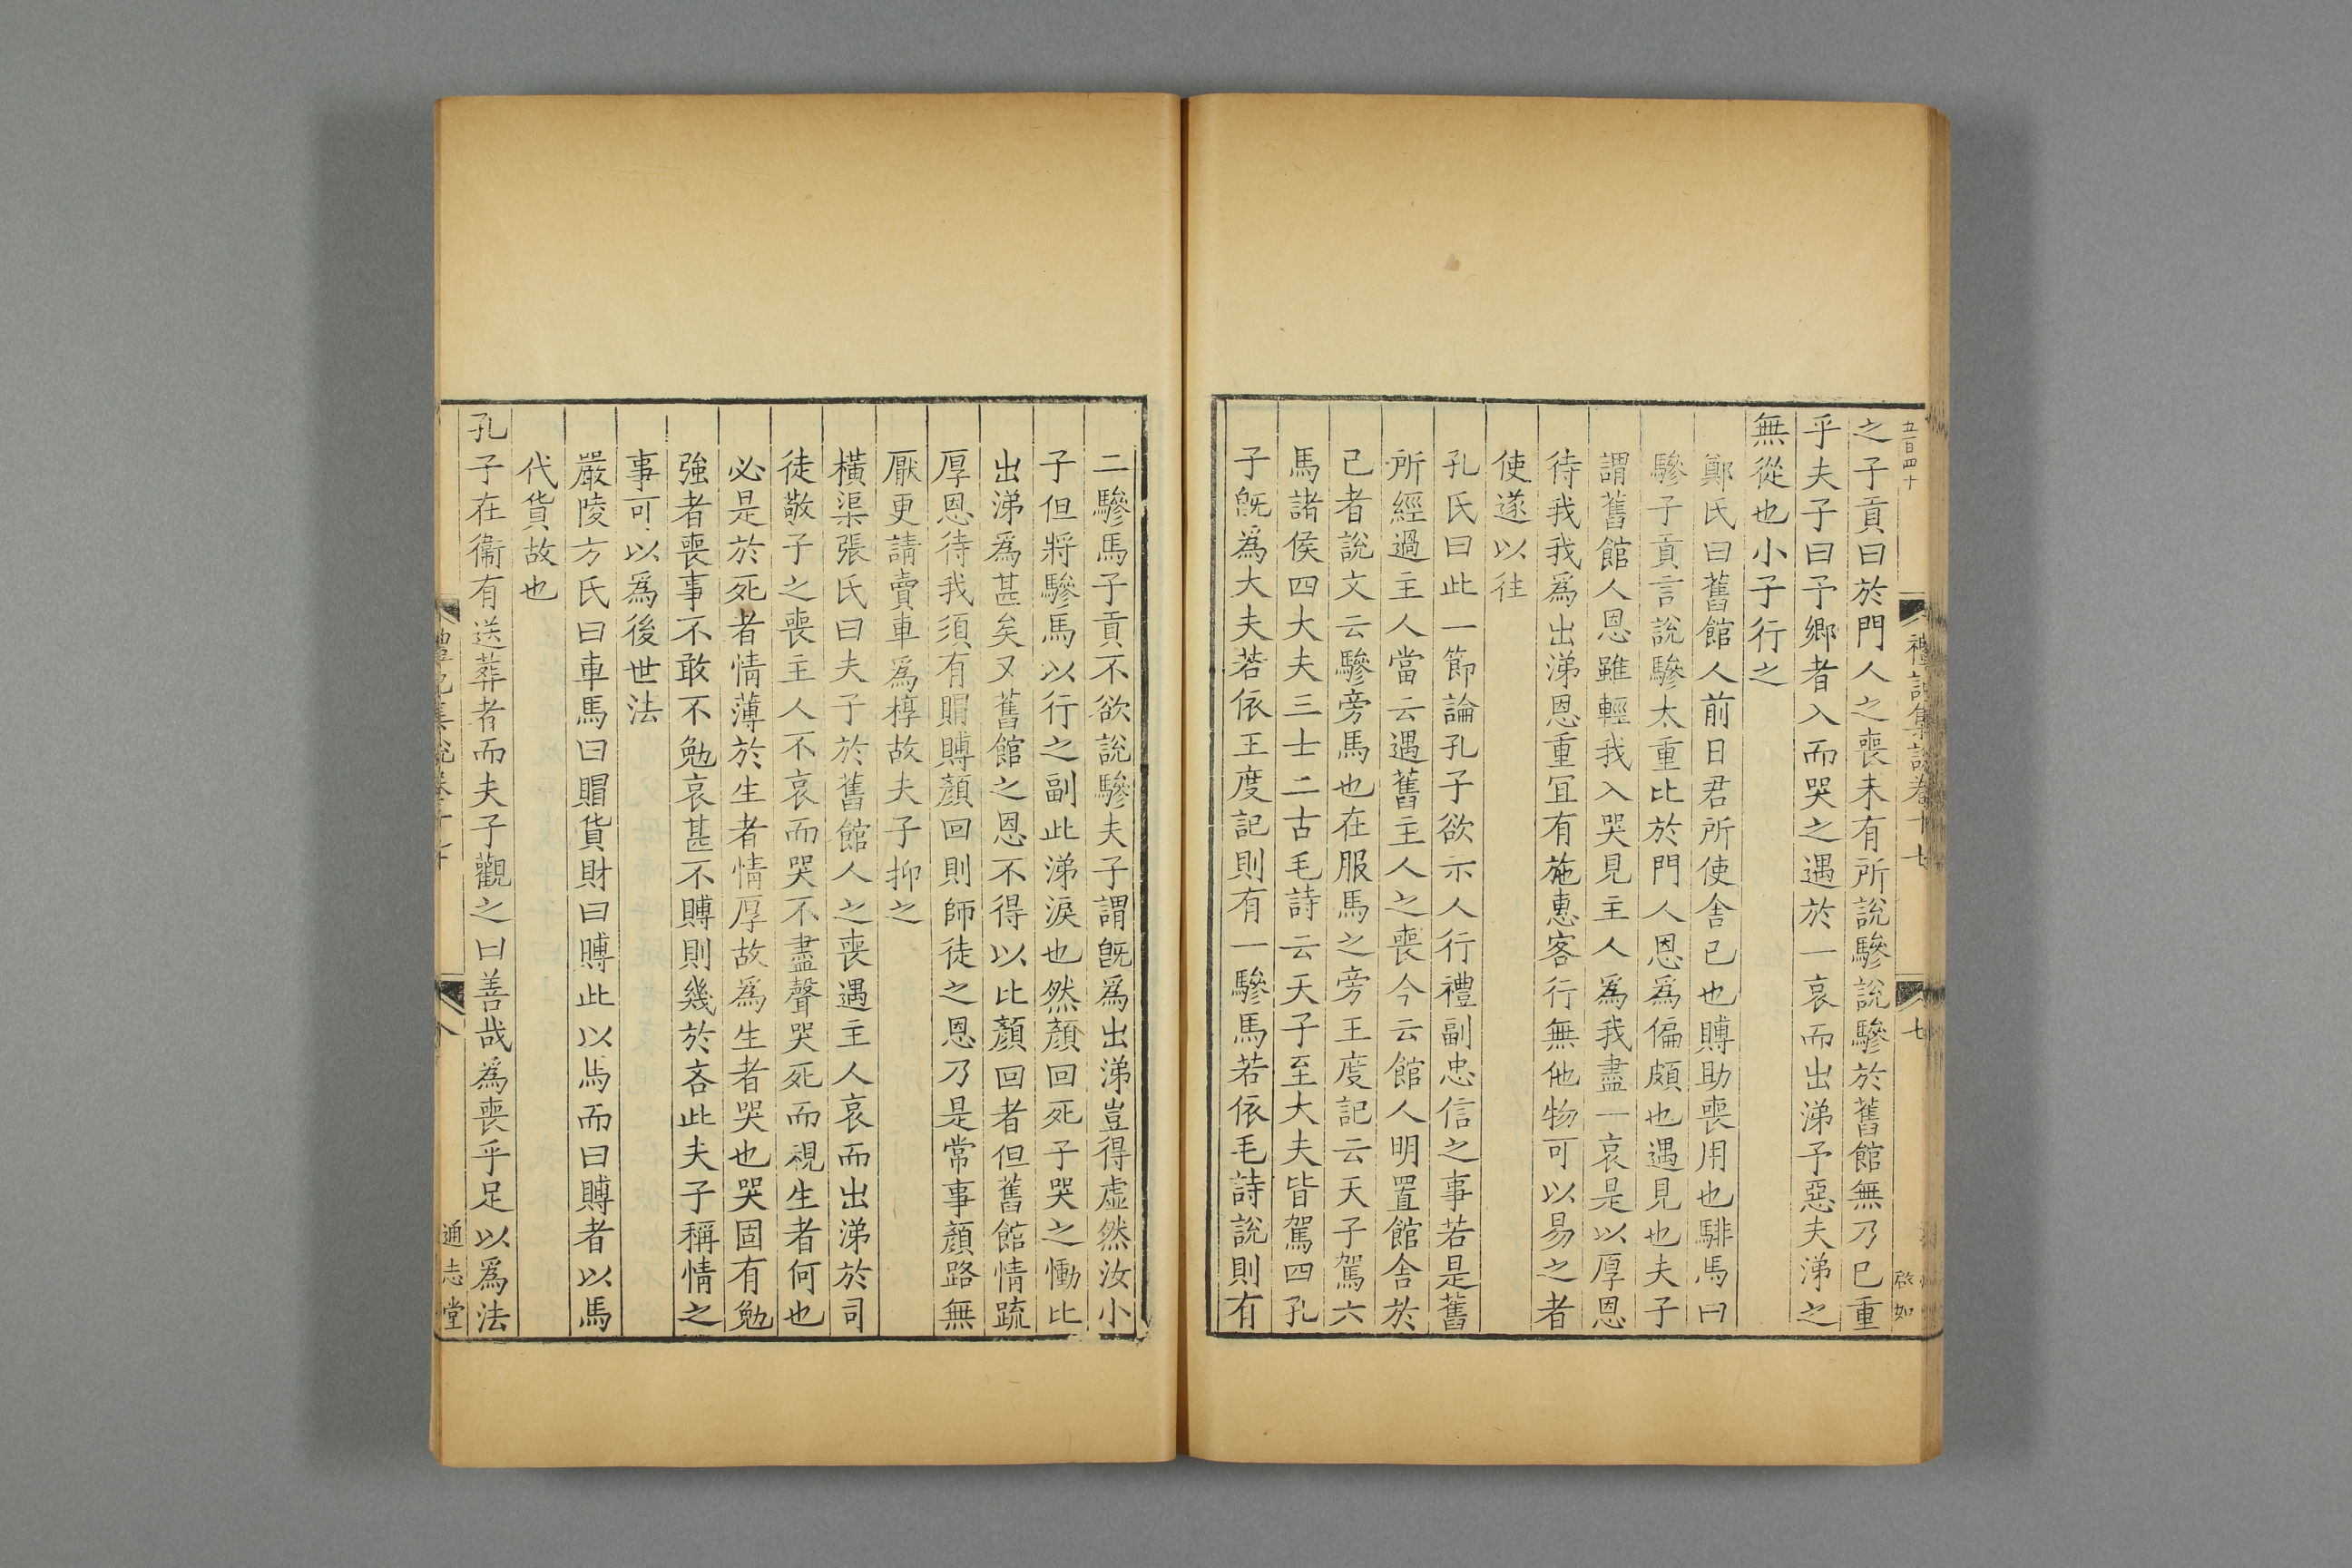 五百四十
禮記集說卷十七
七
啟如
之子貢曰於門人之喪未有所說驂說驂於舊館無乃已重
乎夫子曰予鄉者入而哭之遇於一哀而出涕予惡夫涕之
無從也小子行之
鄭氏曰舊館人前日君所使舍已也賻助喪用也騑馬曰
驂子貢言說驂太重比於門人恩爲偏頗也遇見也夫子
謂舊館人恩雖輕我入哭見主人爲我盡一哀是以厚恩
待我我爲出涕恩重冝有施惠客行無他物可以易之者
使遂以往
孔氏曰此一節論孔子欲示人行禮副忠信之事若是舊
所經過主人當云遇舊主人之喪今云館人明置館舍於
己者說文云驂旁馬也在服馬之旁王度記云天子駕六
馬諸侯四大夫三士二古毛詩云天子至大夫皆駕四孔
子旣爲大夫若依王度記則有一驂馬若依毛詩說則有
二驂馬子貢不欲說驂夫子謂旣爲出涕豈得虛然汝小
子但將驂馬以行之副此涕淚也然顏回死子哭之慟比
出涕爲甚矣又舊館之恩不得以比顏回者但舊館情疏
厚恩待我須有賵賻顏回則師徒之恩乃是常事顏路無
厭更請賣車爲椁故夫子抑之
橫渠張氏曰夫子於舊館人之喪遇主人哀而出涕於司
徒敬子之喪主人不哀而哭不盡聲哭死而視生者何也
必是於死者情薄於生者情厚故爲生者哭也哭固有勉
強者喪事不敢不勉哀甚不賻則幾於吝此夫子稱情之
事可以爲後世法
嚴陵方氏曰車馬曰賵貨財曰賻此以馬而曰賻者以馬
代貨故也
孔子在衞有送葬者而夫子觀之曰善哉爲喪乎足以爲法
禮記集說卷十七
八
通志堂